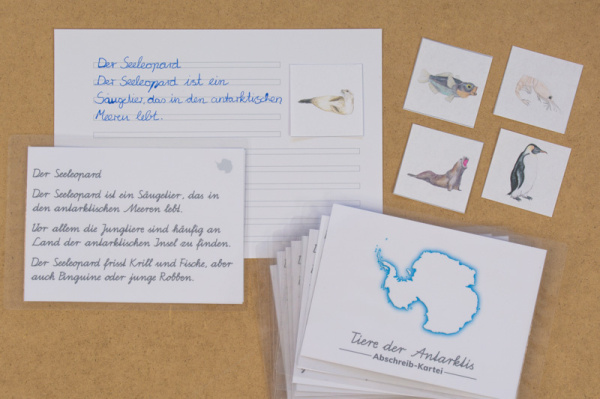 Der Seeleopard
Der Seeleopard ist ein
Säugetier, das in den antarktischen
Meeren lebt.
Der Seeleopard
Der Seeleopard ist ein Säugetier, das in
den antarktischen Meeren lebt.
Vor allem die Jungtiere sind häufig an
Land der antarktischen Insel zu finden.
Der Seeleopard frisst Krill und Fische, aber
auch Pinguine oder junge Robben.
Tiere der Antarktis
Abschreib-Kartei